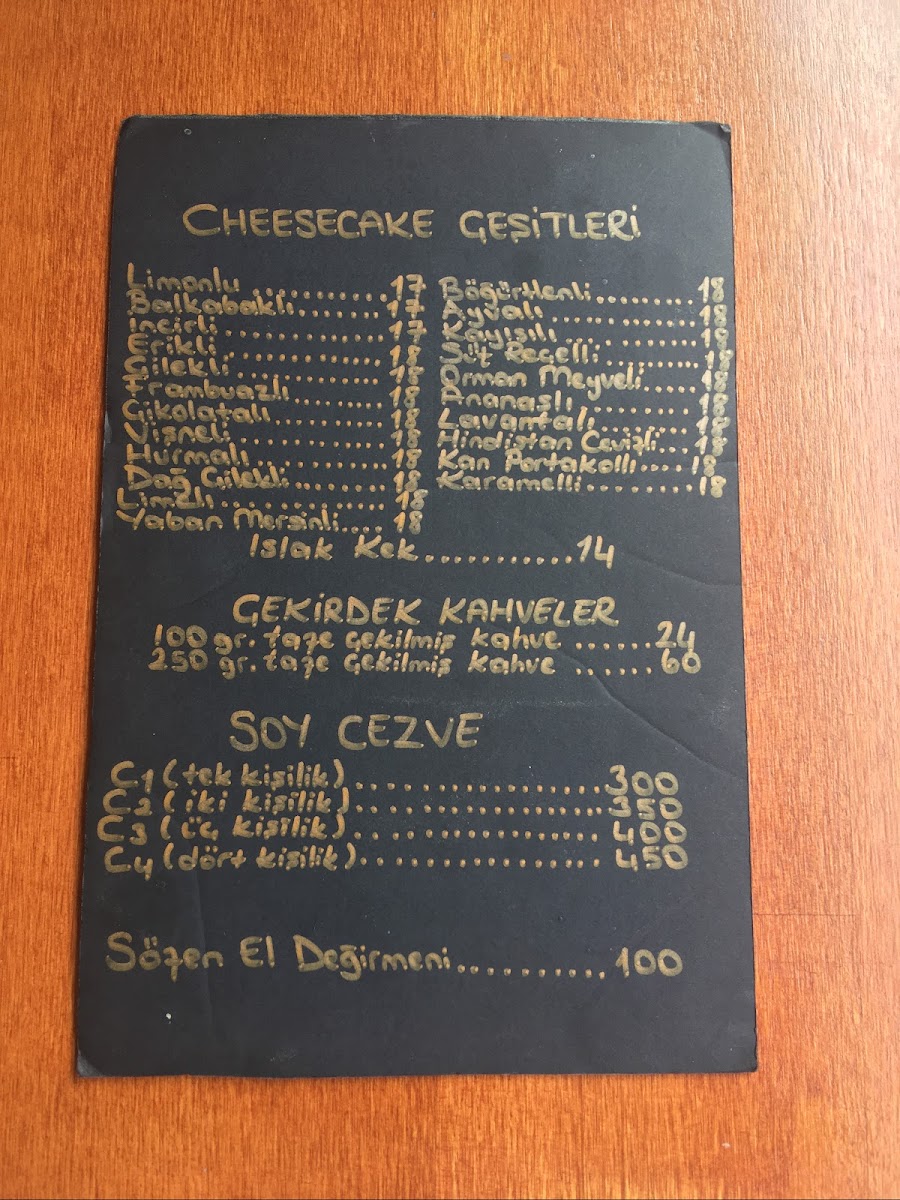 CHEESECAKE ÇEŞİTLERİ
Limonlu .......... 17
Balkabaklı........ 17
İncirli .......... 17
Erikli ........... 18
Çilekli .......... 18
Frambuazlı........ 18
Çikolatalı ....... 18
Vişneli........... 18
Hurmalı .......... 18
Dağ Çilekli ...... 18
Limeli ........... 18
Yaban Mersinli.... 18
Böğürtlenli....... 18
Ayvalı ........... 18
Kayısılı ......... 18
Süt Reçelli ...... 18
Orman Meyveli..... 18
Ananaslı ......... 18
Lavantalı......... 18
Hindistan Cevizli .. 18
Kan Portakallı.... 18
Karamelli ........ 18
Islak Kek...........14
ÇEKİRDEK KAHVELER
100 gr. taze çekilmiş kahve ......24
250 gr. taze çekilmiş kahve ......60
SOY CEZVE
C1 (tek kişilik) .................300
C2 (iki kişilik) .................350
C3 (üç kişilik)..................400
C4 (dört kişilik)................450
Sözen El Değirmeni...........100